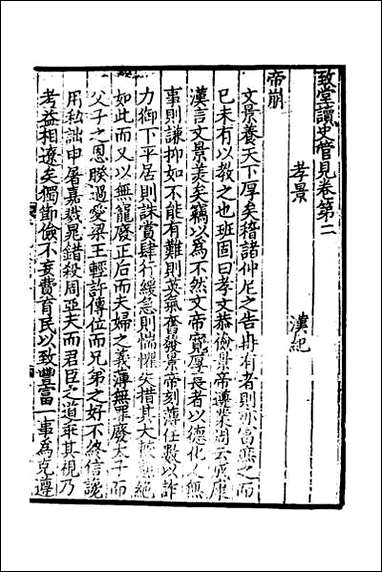 致堂讀史管見卷第二
孝景　漢紀
帝崩
文景養天下厚矣稽諸仲尼之告冉有者則亦富庶之而
已未有以教之也班固曰孝文恭儉景帝遵業周云成康
漢言文景美矣竊以為不然文帝寬厚長者以德化人無
事則謙抑如不能有難則英氣奮發景帝刻薄任數以詐
力御下平居則誅賞肆行緩急則惴懼失措其大絕
如此而又以無寵廢正后而夫婦之義薄無罪廢太子而
父子之恩睽過愛梁王輕許傳位而兄弟之好不終信讒
用私詘申屠嘉戮晁錯殺周亞夫而君臣之道乖其視乃
考益相遼矣獨節儉不妄費育民以致豐富一事為克遵